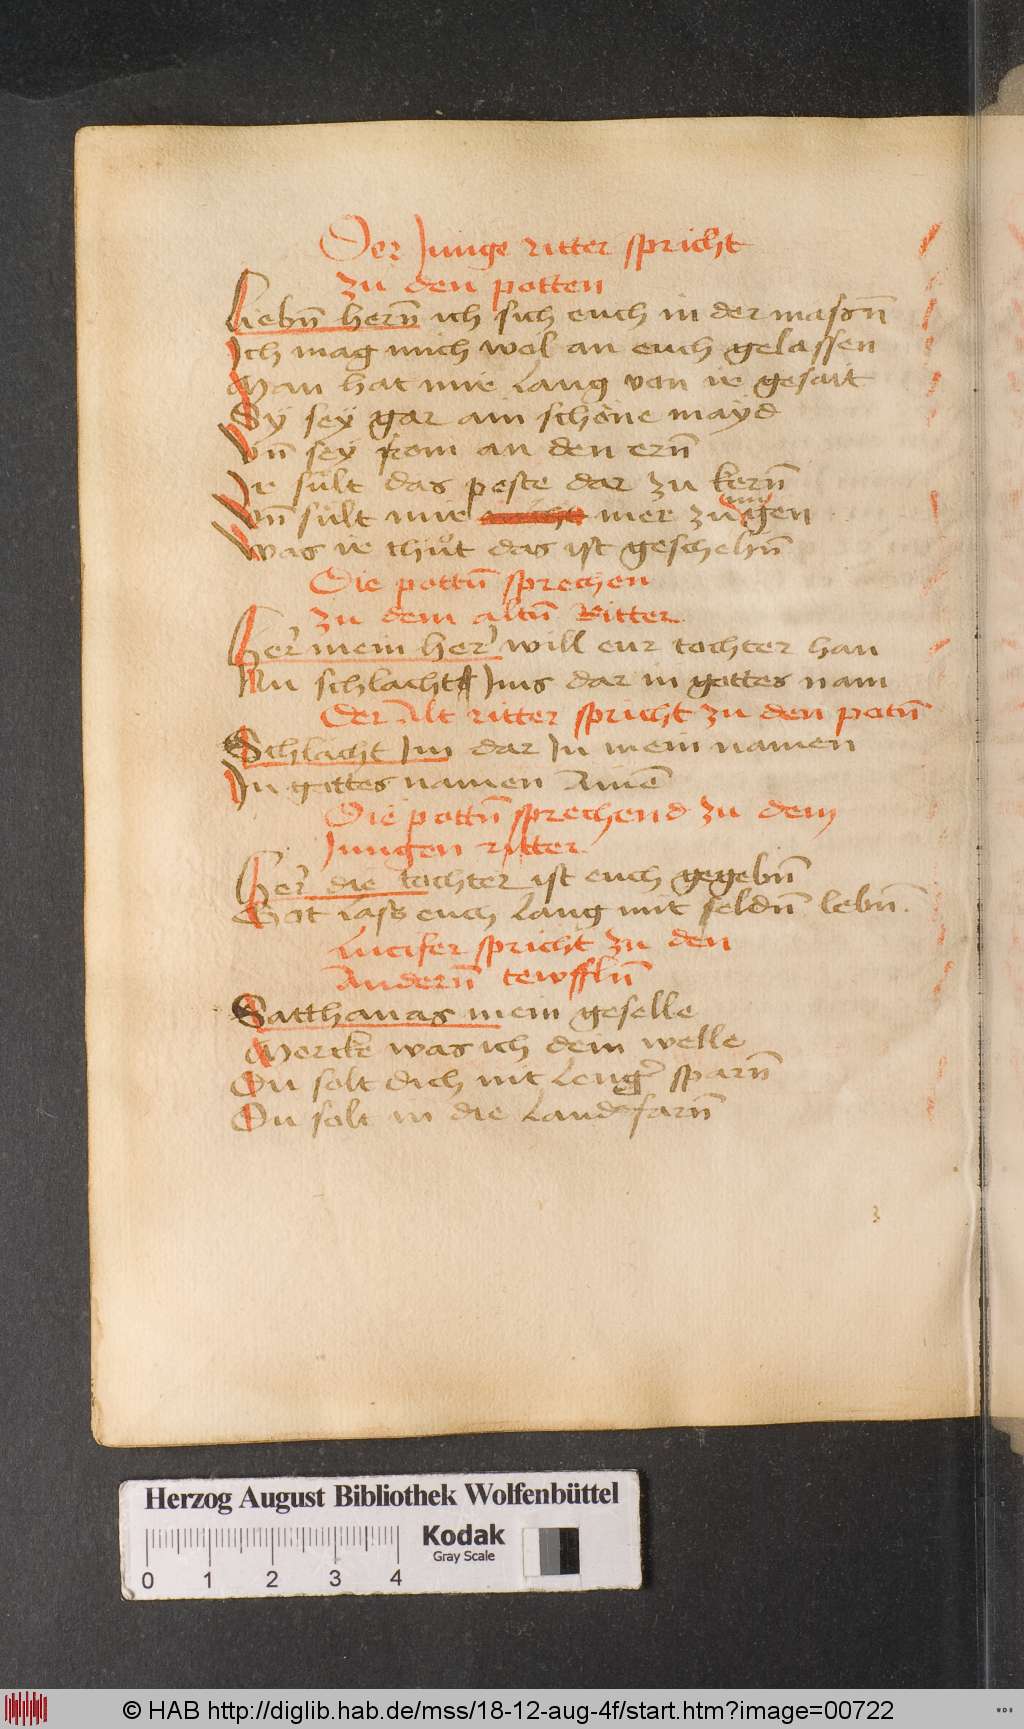 Der Junge ritter spricht
zu den potten
Liebn̄ hern̄ ich sich euch in der massn̄
Ich mag mich wol an euch gelassen
Man hat mir lang von ir gesait
Sÿ seÿ gar ain schöne mayd
Vn̄ seÿ from an den ern̄
Ir sült das peste dar zu kern̄
Vn̄ sült mir mer zu gen
Was ir thüt das ist geschehn̄
Die pottn̄ sprechen
zu dem altn̄ Ritter
Her mein her will eur tochter han
Nu schlacht Ims dar in gottes nam
Der Alt ritter spricht zu den potn̄
Schlacht Im dar In mein namen
In gottes namen Amē
Die pottn̄ sprechend zu dem
Jungen ritter
Her die tochter ist euch gegebn̄
Got lass euch lang mit seldn̄ lebn̄
Lucifer spricht zu den
Andern̄ tewffln̄
Satthanas mein geselle
Merck was ich dein welle
Du solt dich nit leng sparn̄
Du solt in die land farn̄
3
Herzog August Bibliothek Wolfenbüttel
Kodak
Gray Scale
0 1 2 3 4
© HAB http://diglib.hab.de/mss/18-12-aug-4f/start.htm?image=00722